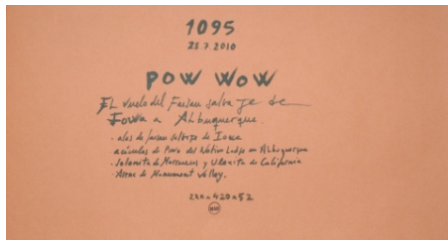 1095
23.7.2010
POW WOW
EL vuelo del Faisan salvage de
Iowa a Albuquerque.
- alas de faisan salvage de Iowa
acículas de Pino del Native Lodge en Albuquerque
- Jalonita de Marruecos y Ulexita de California
- Arenas de Monument Valley.
280 x 420 x 52